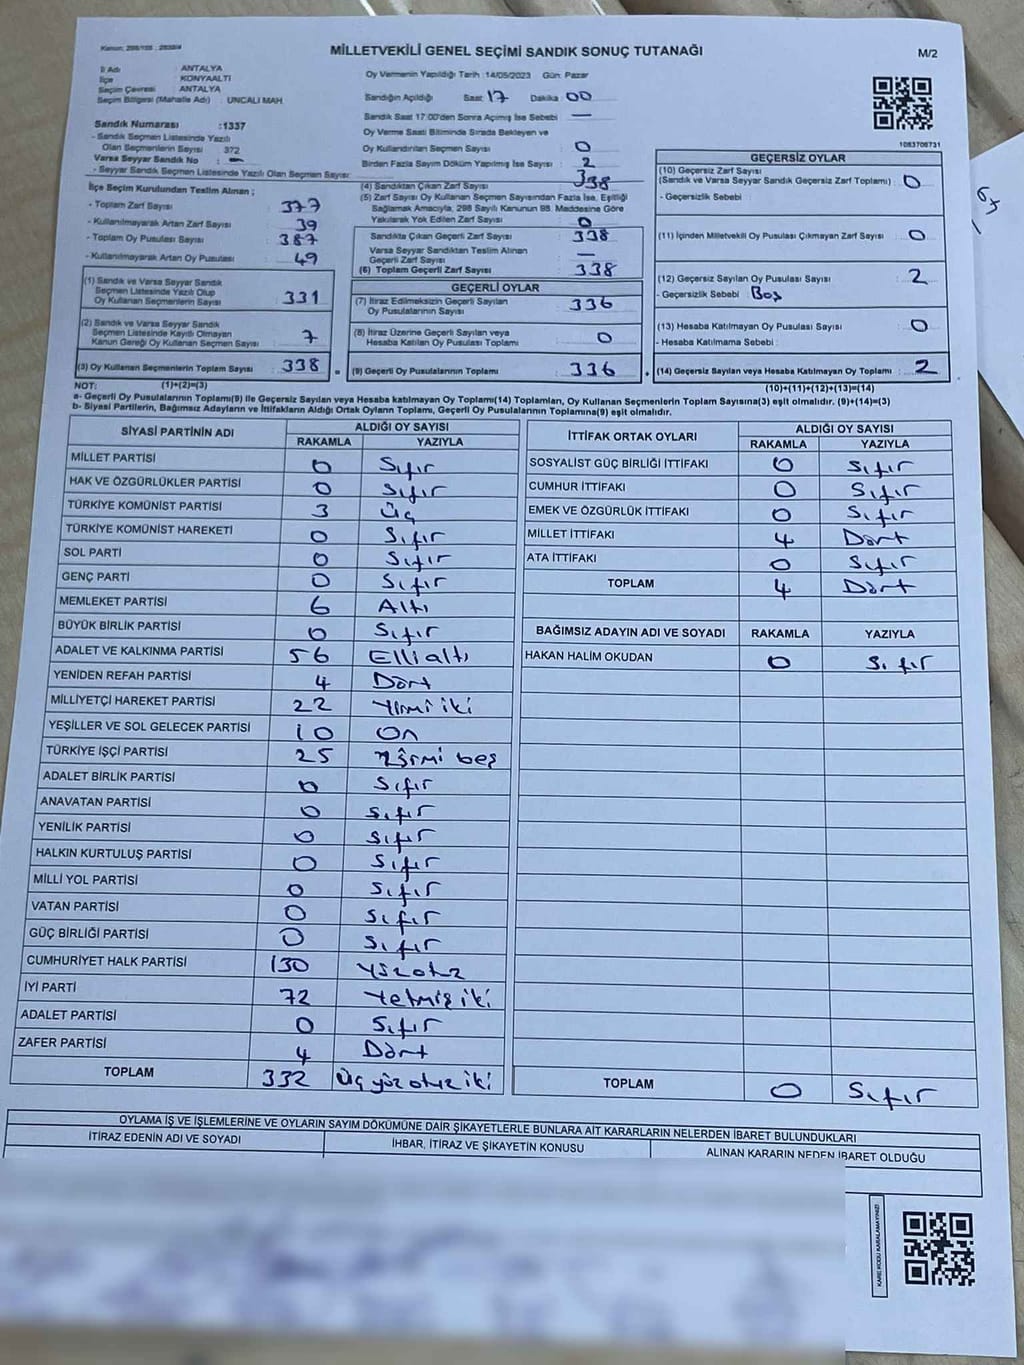 Kanun: 298/105 ; 2839/4
MİLLETVEKİLİ GENEL SEÇİMİ SANDIK SONUÇ TUTANAĞI
M/2
İl Adı : ANTALYA
İlçe : KONYAALTI
Seçim Çevresi : ANTALYA
Seçim Bölgesi (Mahalle Adı) : UNCALI MAH
Sandık Numarası :1337
- Sandık Seçmen Listesinde Yazılı
Olan Seçmenlerin Sayısı : 372
Varsa Seyyar Sandık No : —
- Seyyar Sandık Seçmen Listesinde Yazılı Olan Seçmen Sayısı:
İlçe Seçim Kurulundan Teslim Alınan ;
- Toplam Zarf Sayısı : 377
- Kullanılmayarak Artan Zarf Sayısı : 39
- Toplam Oy Pusulası Sayısı : 387
- Kullanılmayarak Artan Oy Pusulası : 49
(1) Sandık ve Varsa Seyyar Sandık
Seçmen Listesinde Yazılı Olup
Oy Kullanan Seçmenlerin Sayısı : 331
(2) Sandık ve Varsa Seyyar Sandık
Seçmen Listesinde Kayıtlı Olmayan
Kanun Gereği Oy Kullanan Seçmen Sayısı : 7
(3) Oy Kullanan Seçmenlerin Toplam Sayısı : 338 =
Oy Vermenin Yapıldığı Tarih :14/05/2023 Gün: Pazar
Sandığın Açıldığı Saat 17 Dakika 00
Sandık Saat 17:00'den Sonra Açılmış İse Sebebi : —
Oy Verme Saati Bitiminde Sırada Bekleyen ve
Oy Kullandırılan Seçmen Sayısı : 0
Birden Fazla Sayım Döküm Yapılmış İse Sayısı : 2
(4) Sandıktan Çıkan Zarf Sayısı : 338
(5) Zarf Sayısı Oy Kullanan Seçmen Sayısından Fazla İse, Eşitliği
Sağlamak Amacıyla, 298 Sayılı Kanunun 98. Maddesine Göre
Yakılarak Yok Edilen Zarf Sayısı : 0
Sandıkta Çıkan Geçerli Zarf Sayısı : 338
Varsa Seyyar Sandıktan Teslim Alınan
Geçerli Zarf Sayısı : —
(6) Toplam Geçerli Zarf Sayısı : 338
GEÇERLİ OYLAR
(7) İtiraz Edilmeksizin Geçerli Sayılan
Oy Pusulalarının Sayısı : 336
(8) İtiraz Üzerine Geçerli Sayılan veya
Hesaba Katılan Oy Pusulası Toplamı : 0
(9) Geçerli Oy Pusulalarının Toplamı : 336 +
1083708731
GEÇERSİZ OYLAR
(10) Geçersiz Zarf Sayısı
(Sandık ve Varsa Seyyar Sandık Geçersiz Zarf Toplamı) : 0
- Geçersizlik Sebebi :
(11) İçinden Milletvekili Oy Pusulası Çıkmayan Zarf Sayısı : 0
(12) Geçersiz Sayılan Oy Pusulası Sayısı : 2
- Geçersizlik Sebebi : Boş
(13) Hesaba Katılmayan Oy Pusulası Sayısı : 0
- Hesaba Katılmama Sebebi :
(14) Geçersiz Sayılan veya Hesaba Katılmayan Oy Toplamı : 2
NOT: (1)+(2)=(3) (10)+(11)+(12)+(13)=(14)
a- Geçerli Oy Pusulalarının Toplamı(9) ile Geçersiz Sayılan veya Hesaba katılmayan Oy Toplamı(14) Toplamları, Oy Kullanan Seçmenlerin Toplam Sayısına(3) eşit olmalıdır. (9)+(14)=(3)
b- Siyasi Partilerin, Bağımsız Adayların ve İttifakların Aldığı Ortak Oyların Toplamı, Geçerli Oy Pusulalarının Toplamına(9) eşit olmalıdır.
SİYASİ PARTİNİN ADI ALDIĞI OY SAYISI
RAKAMLA YAZIYLA
MİLLET PARTİSİ 0 Sıfır
HAK VE ÖZGÜRLÜKLER PARTİSİ 0 Sıfır
TÜRKİYE KOMÜNİST PARTİSİ 3 Üç
TÜRKİYE KOMÜNİST HAREKETİ 0 Sıfır
SOL PARTİ 0 Sıfır
GENÇ PARTİ 0 Sıfır
MEMLEKET PARTİSİ 6 Altı
BÜYÜK BİRLİK PARTİSİ 0 Sıfır
ADALET VE KALKINMA PARTİSİ 56 Elli altı
YENİDEN REFAH PARTİSİ 4 Dört
MİLLİYETÇİ HAREKET PARTİSİ 22 Yirmi iki
YEŞİLLER VE SOL GELECEK PARTİSİ 10 On
TÜRKİYE İŞÇİ PARTİSİ 25 Yirmi beş
ADALET BİRLİK PARTİSİ 0 Sıfır
ANAVATAN PARTİSİ 0 Sıfır
YENİLİK PARTİSİ 0 Sıfır
HALKIN KURTULUŞ PARTİSİ 0 Sıfır
MİLLİ YOL PARTİSİ 0 Sıfır
VATAN PARTİSİ 0 Sıfır
GÜÇ BİRLİĞİ PARTİSİ 0 Sıfır
CUMHURİYET HALK PARTİSİ 130 Yüz otuz
İYİ PARTİ 72 Yetmiş iki
ADALET PARTİSİ 0 Sıfır
ZAFER PARTİSİ 4 Dört
TOPLAM 332 Üç yüz otuz iki
İTTİFAK ORTAK OYLARI ALDIĞI OY SAYISI
RAKAMLA YAZIYLA
SOSYALİST GÜÇ BİRLİĞİ İTTİFAKI 0 Sıfır
CUMHUR İTTİFAKI 0 Sıfır
EMEK VE ÖZGÜRLÜK İTTİFAKI 0 Sıfır
MİLLET İTTİFAKI 4 Dört
ATA İTTİFAKI 0 Sıfır
TOPLAM 4 Dört
BAĞIMSIZ ADAYIN ADI VE SOYADI RAKAMLA YAZIYLA
HAKAN HALİM OKUDAN 0 Sıfır
TOPLAM 0 Sıfır
OYLAMA İŞ VE İŞLEMLERİNE VE OYLARIN SAYIM DÖKÜMÜNE DAİR ŞİKAYETLERLE BUNLARA AİT KARARLARIN NELERDEN İBARET BULUNDUKLARI
İTİRAZ EDENİN ADI VE SOYADI İHBAR, İTİRAZ VE ŞİKAYETİN KONUSU ALINAN KARARIN NEDEN İBARET OLDUĞU
KARE KODU KARALAMAYINIZ!